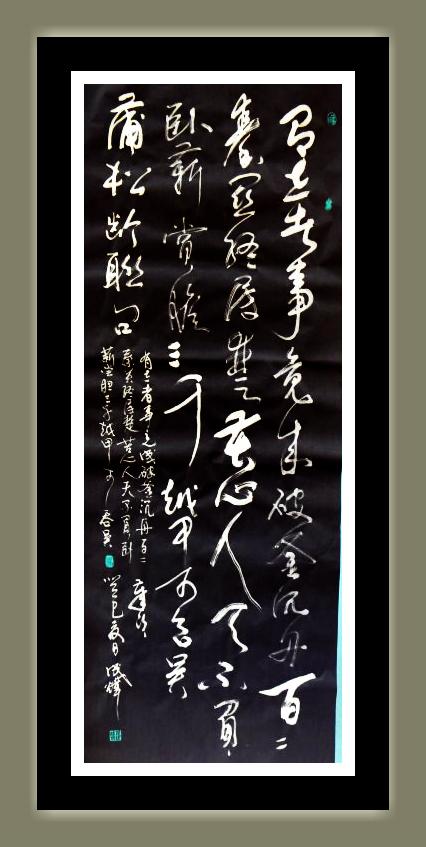 有志者事竟成破釜沉舟百二
秦關终属楚苦心人天不負
卧薪嘗膽三千越甲可吞吴
蒲松龄聯句
有志者事竟成破釜沉舟百二
秦关终属楚苦心人天不負卧
薪尝胆三千越甲可吞吴
癸巳夏月